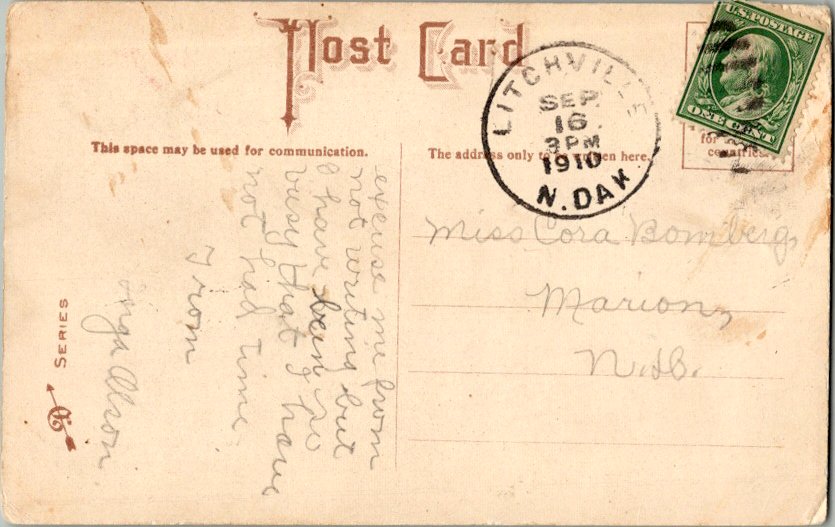 Post Card
LITCHVILLE
SEP
16
3 PM
1910
N. DAK.
U.S. POSTAGE
ONE CENT
for
countries
This space may be used for communication.
The address only to be written here.
Miss Cora Bomberg,
Marion,
N.D.
excuse me from
not writing but
I have bein so
busy that I have
not had time.
From
Olson.
SERIES